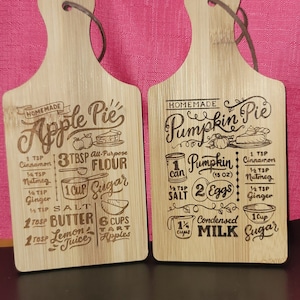 HOMEMADE
Apple Pie
1 TSP
Cinnamon
1/4 TSP
Nutmeg
1/4 TSP
Ginger
3 TBSP All-Purpose
FLOUR
1 CUP Sugar
1/4 TSP SALT
1 TBSP BUTTER
1 TBSP Lemon Juice
6 CUPS
TART
Apples
HOMEMADE
Pumpkin Pie
1 can
Pumpkin
(15 OZ)
1 TSP
Cinnamon
1/4 TSP
Nutmeg
1/2 TSP
Ginger
1/2 TSP
SALT
2 Eggs
1 1/4 CUPS
Condensed
MILK
1 Cup
Sugar